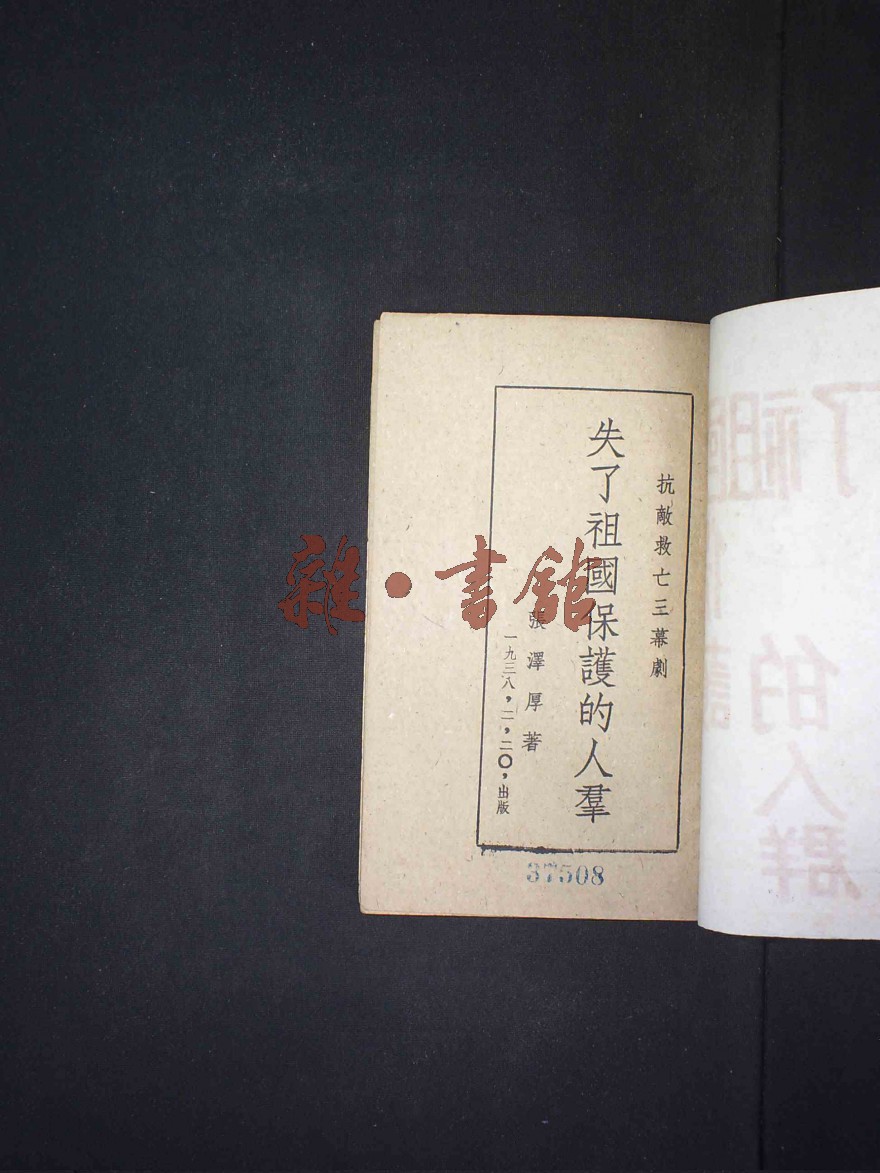 抗敵救亡三幕劇
失了祖國保護的人羣
張澤厚著
一九三八，一，二〇，出版
37508
雜·書館